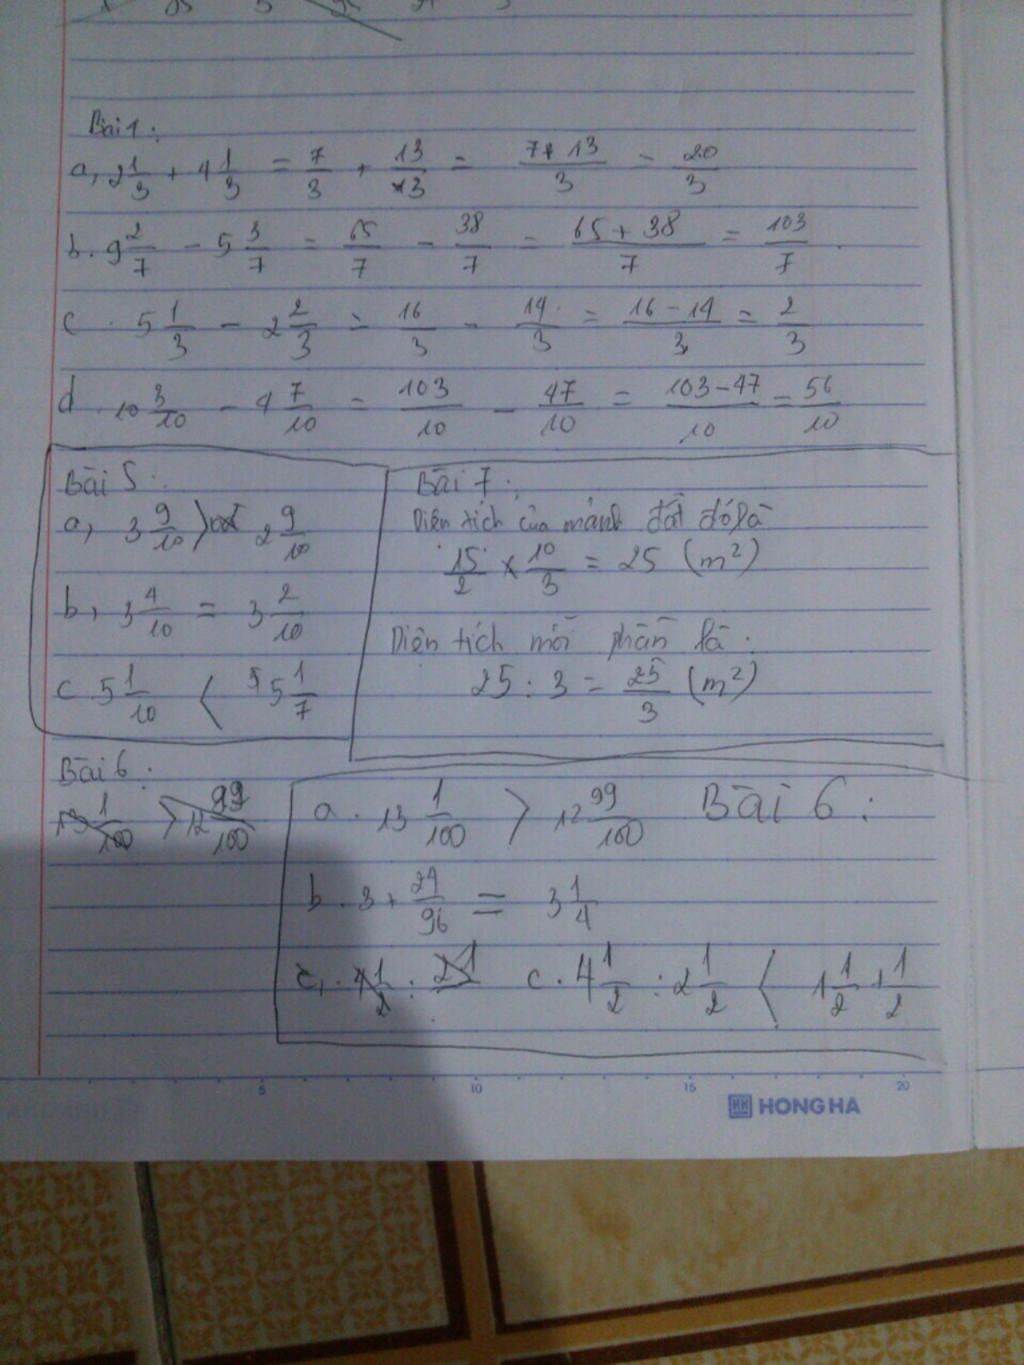 Bài 1:
a, 2 1/3 + 4 1/3 = 7/3 + 13/3 = 7+13/3 = 20/3
b. 9 2/7 - 5 3/7 = 65/7 - 38/7 = 65+38/7 = 103/7
c. 5 1/3 - 2 2/3 = 16/3 - 14/3 = 16-14/3 = 2/3
d. 10 3/10 - 4 7/10 = 103/10 - 47/10 = 103-47/10 = 56/10
Bài 5:
a, 3 9/10 > 2 9/10
b, 3 4/10 = 3 2/10
c 5 1/10 < 5 1/7
Bài 7:
Diện tích của mảnh đất đó là
15/2 x 10/3 = 25 (m²)
Diện tích mỗi phần là:
25 : 3 = 25/3 (m²)
Bài 6:
13 1/100 > 12 99/100
a. 13 1/100 > 12 99/100 Bài 6:
b. 3 + 24/96 = 3 1/4
c, 4 1/2 : 2 1 c. 4 1/2 : 2 1/2 < 1 1/2 + 1/2
5 10 15 20
HONG HA